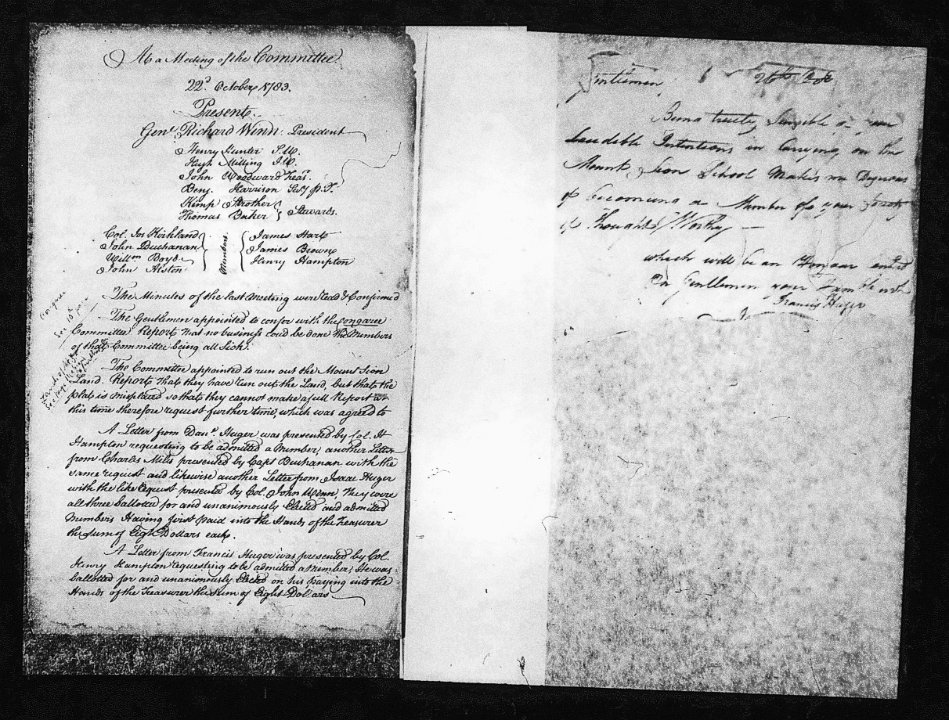 At a Meeting of the Committee
22d October 1783.
Present.
Genl Richard Winn President
Henry Hunter S.W.
Hugh Milling J.W.
John Woodward Treasr.
Benj. Harrison Secy p. T.
Kemp Strother
Thomas Baker } Stewards.
Col. Jos Kirkland
John Buchanan
Willm Boyd
John Alston
Members
James Hart
James Brown
Henry Hampton
The Minutes of the last Meeting were read & Confirmed
The Gentlemen appointed to confer with the Congaree
Committee Report that no business could be done the Members
of that Committee being all Sick.
The Committee appointed to run out the Mount Sion
Land. Reports that they have run out the Land, but that the
plat is misplaced so that they cannot make a full Report at
this time therefore request further time, which was agreed to
A Letter from Danl. Huger was presented by Col. H
Hampton requesting to be admitted a Member, another Letter
from Charles Mills presented by Capt Buchanan with the
same request and likewise another Letter from Isaac Huger
with the like request presented by Col. John Winn. They were
all three balloted for and unanimously Elected and admitted
Members Having first paid into the Hands of the Treasurer
the Sum of Eight Dollars each.
A Letter from Francis Huger was presented by Col.
Henry Hampton requesting to be admitted a Member; He was
ballotted for and unanimously Elected on his paying into the
Hands of the Treasurer the Sum of Eight Dollars
Gentlemen
Being truely Sensible of your
laudeble Intentions in Carrying on the
Mount Sion School Makes me Desirous
of becoming a Member of your Society
if thought Worthy
which will be an Honour
Gentlemen your Humble
Francis Huger